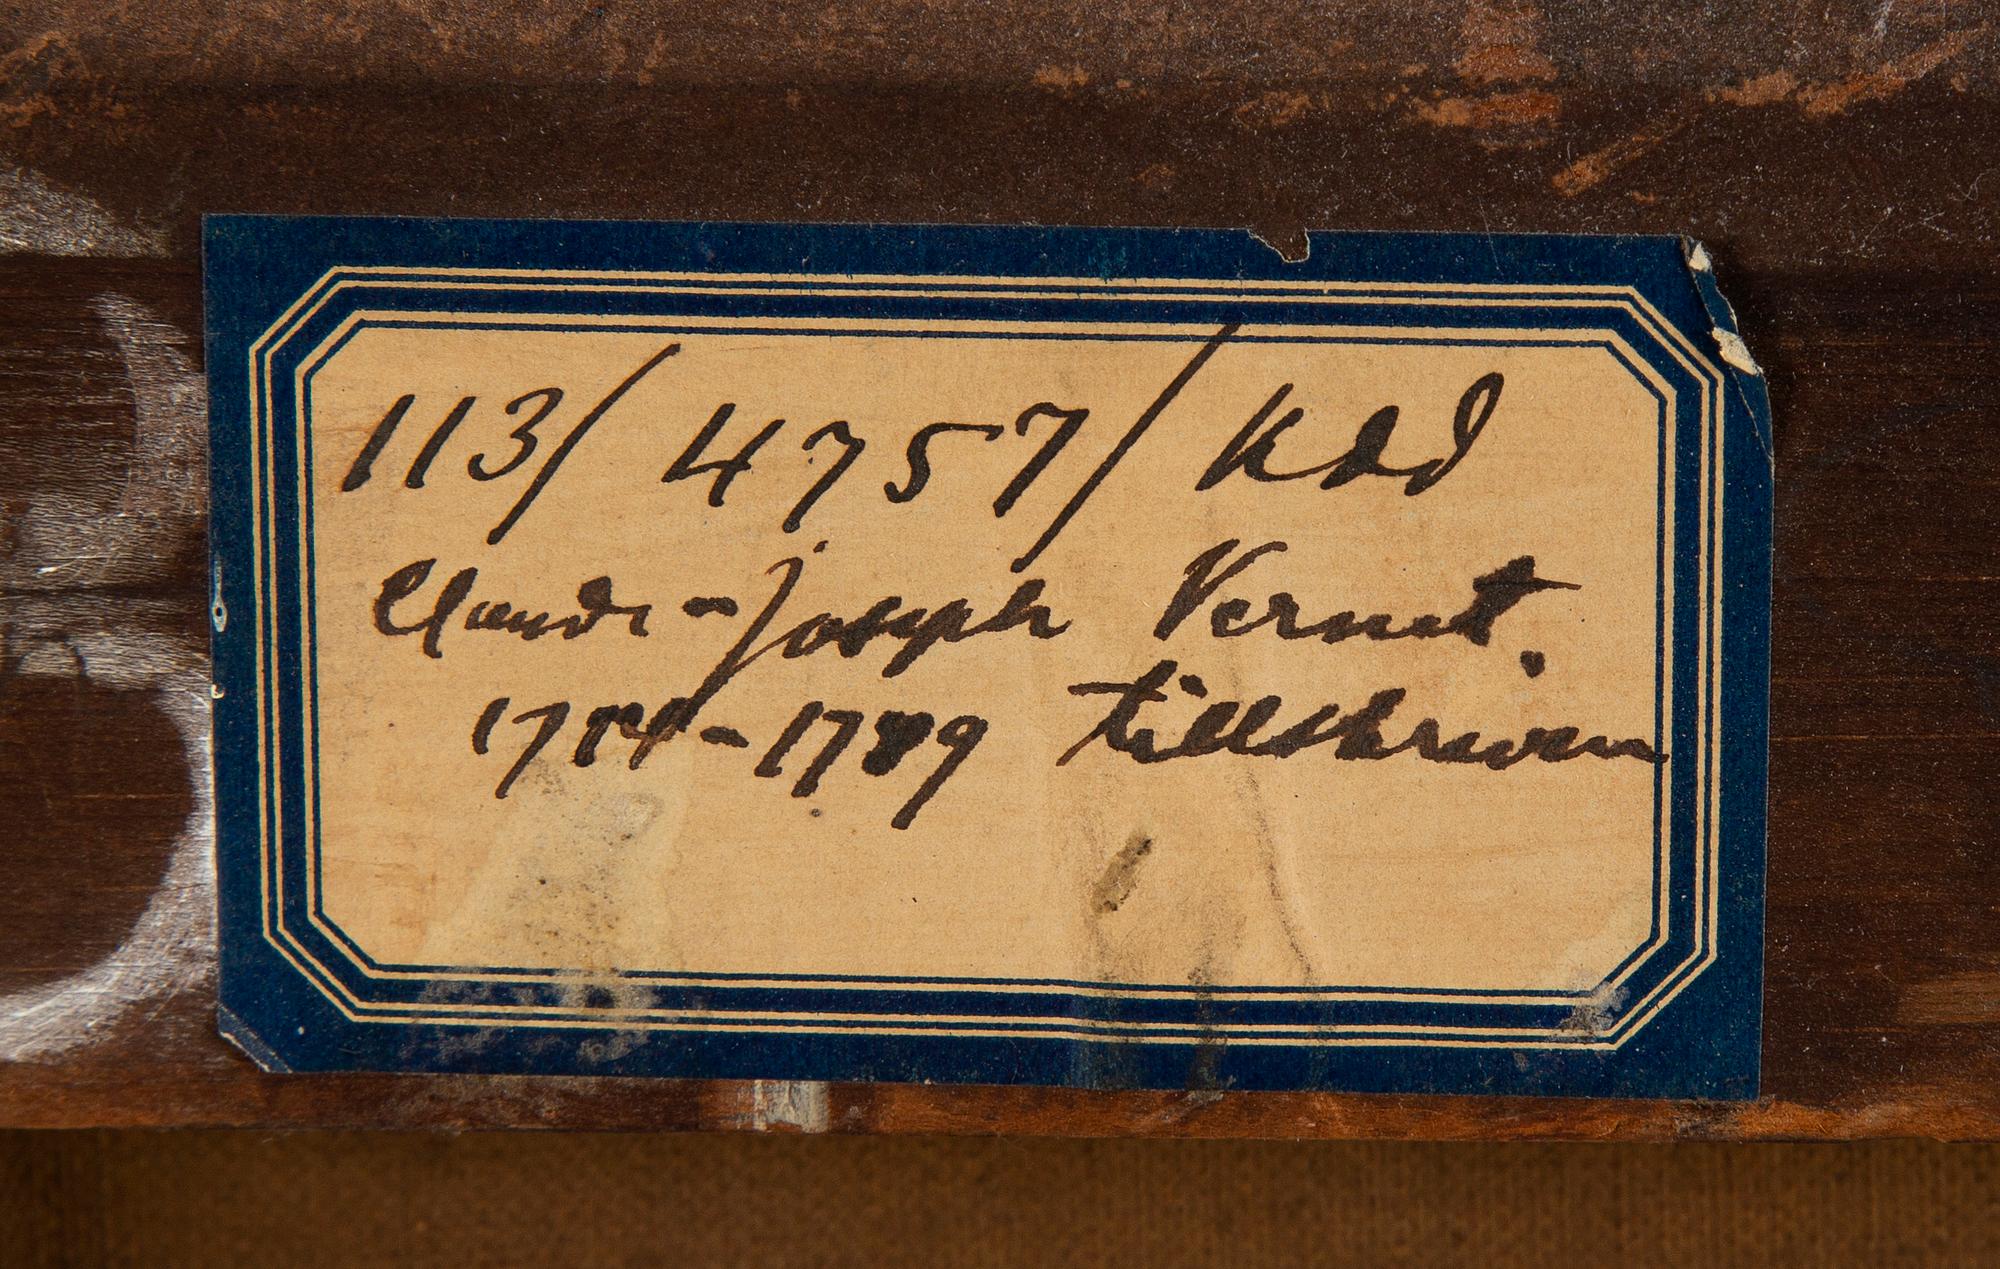 113/ 4757/ Kdd
Claude-Joseph Vernet.
1714-1789 tillskriven